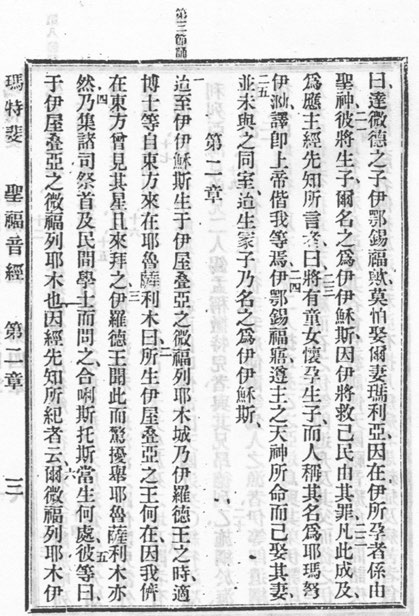 曰達微德之子伊鄂錫福歟莫怕娶爾妻瑪利亞因在伊所孕者係由
聖神彼將生子爾名之為伊伊穌斯因伊將救己民由其罪凡此成及
為應主經先知所言者曰將有童女懷孕生子而人稱其名為耶瑪努
伊泐譯即上帝偕我等焉伊鄂錫福寤遵主之天神所命而已娶其妻
並未與之同室迨生冢子乃名之為伊伊穌斯
第二章
迨至伊伊穌斯生于伊屋叠亞之微福列耶木城乃伊羅德王之時適
博士等自東方來在耶魯薩利木曰所生伊屋叠亞之王何在因我儕
在東方曾見其星且來拜之伊羅德王聞此而驚擾舉耶魯薩利木亦
然乃集諸司祭首及民間學士而問之合唎斯托斯當生何處彼等曰
于伊屋叠亞之微福列耶木也因經先知所紀者云爾微福列耶木伊
瑪特斐 聖福音經 第二章 三